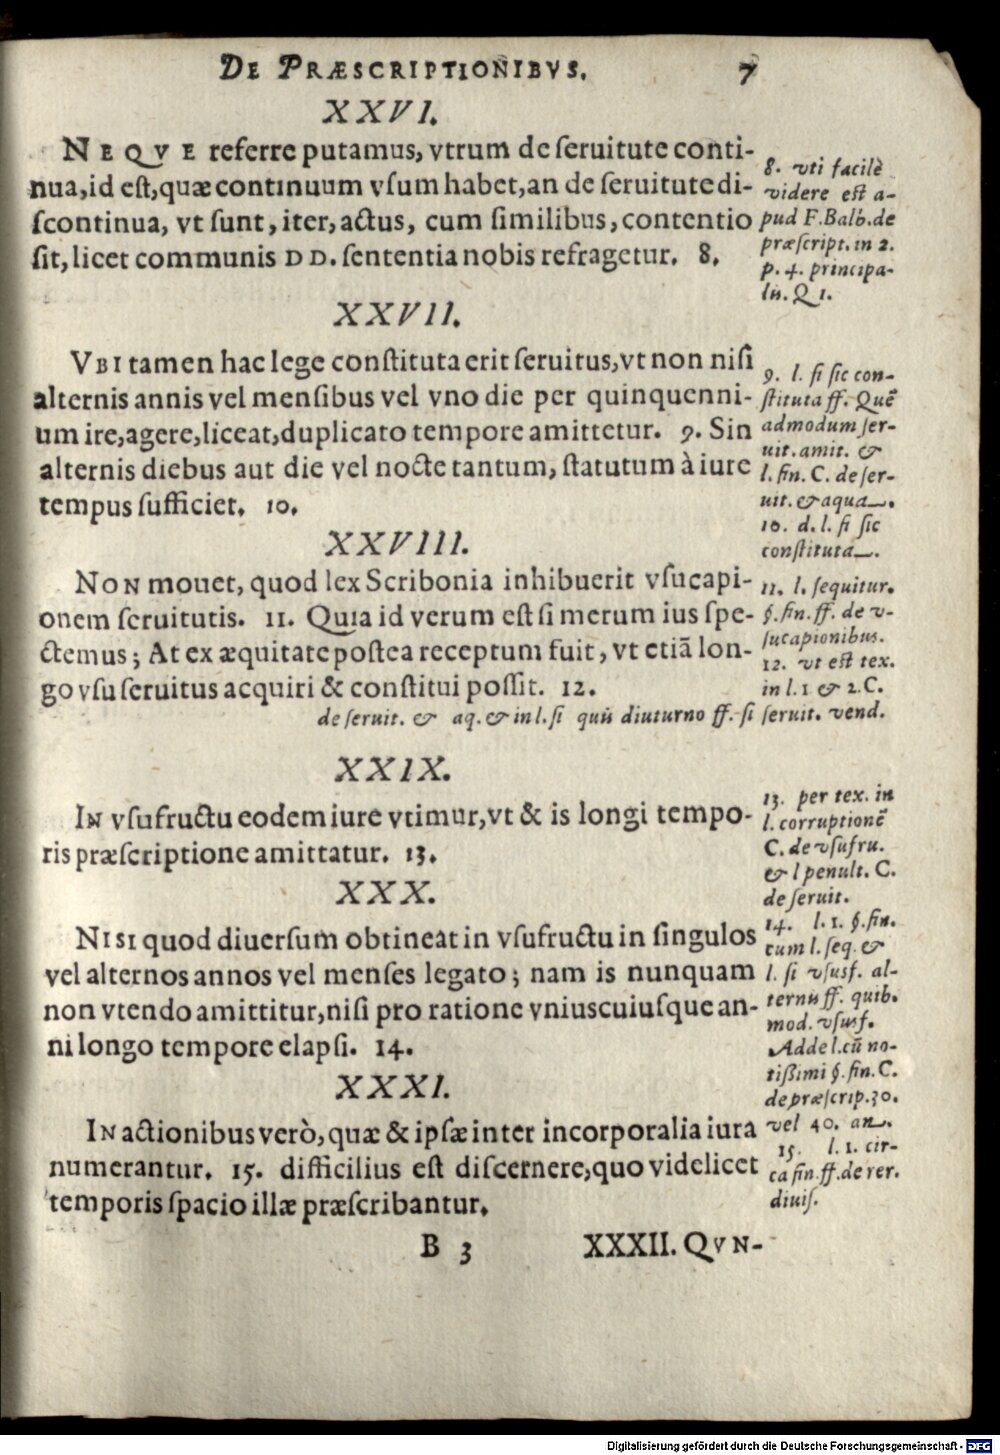 DE PRÆSCRIPTIONIBVS. 7
XXVI.
NEQVE referre putamus, vtrum de ſeruitute conti-
nua, id eſt, quæ continuum vſum habet, an de ſeruitute di-
ſcontinua, vt ſunt, iter, actus, cum ſimilibus, contentio
ſit, licet communis DD. ſententia nobis refragetur. 8.
8. vti facilè
videre eſt a-
pud F. Balb. de
præſcript. in 2.
p. 4. principa-
lis. Q 1.
XXVII.
VBI tamen hac lege conſtituta erit ſeruitus, vt non niſi
alternis annis vel menſibus vel vno die per quinquenni-
um ire, agere, liceat, duplicato tempore amittetur. 9. Sin
alternis diebus aut die vel nocte tantum, ſtatutum à iure
tempus ſufficiet. 10.
9. l. ſi ſic con-
ſtituta ff. Quē
admodum ſer-
uit. amit. &
l. fin. C. de ſer-
uit. & aqua.
10. d. l. ſi ſic
conſtituta.
XXVIII.
NON mouet, quod lex Scribonia inhibuerit vſucapi-
onem ſeruitutis. 11. Quia id verum eſt ſi merum ius ſpe-
ctemus; At ex æquitate poſtea receptum fuit, vt etiā lon-
go vſu ſeruitus acquiri & conſtitui poſſit. 12.
11. l. ſequitur.
§. fin. ff. de v-
ſucapionibus.
12. vt eſt tex.
in l. 1 & 2. C.
de ſeruit. & aq. & in l. ſi quis diuturno ff. ſi ſeruit. vend.
XXIX.
IN vſufructu eodem iure vtimur, vt & is longi tempo-
ris præſcriptione amittatur. 13.
13. per tex. in
l. corruptionē
C. de vſufru.
& l penult. C.
de ſeruit.
XXX.
NISI quod diuerſum obtineat in vſufructu in ſingulos
vel alternos annos vel menſes legato; nam is nunquam
non vtendo amittitur, niſi pro ratione vniuscuiuſque an-
ni longo tempore elapſi. 14.
14. l. 1. §. fin.
cum l. ſeq. &
l. ſi vſusf. al-
ternis ff. quib.
mod. vſusf.
Adde l. cū no-
tißimi §. fin. C.
de præſcrip. 30.
vel 40. an.
XXXI.
IN actionibus verò, quæ & ipſæ inter incorporalia iura
numerantur. 15. difficilius eſt diſcernere, quo videlicet
temporis ſpacio illæ præſcribantur.
15. l. 1. cir-
ca fin. ff. de rer.
diuiſ.
B 3 XXXII. QVN-
Digitalisierung gefördert durch die Deutsche Forschungsgemeinschaft - DFG